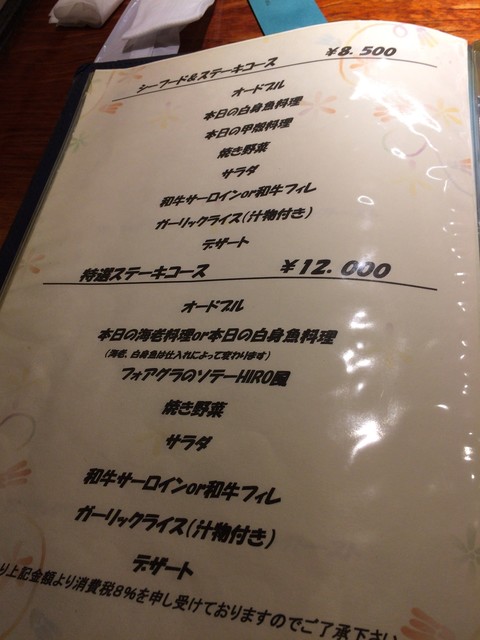 シーフード&ステーキコース ¥8.500
オードブル
本日の白身魚料理
本日の甲殻料理
焼き野菜
サラダ
和牛サーロインor和牛フィレ
ガーリックライス(汁物付き)
デザート
特選ステーキコース ¥12.000
オードブル
本日の海老料理or本日の白身魚料理
(海老、白身魚は仕入れによって変わります)
フォアグラのソテーHIRO風
焼き野菜
サラダ
和牛サーロインor和牛フィレ
ガーリックライス(汁物付き)
デザート
り上記金額より消費税8%を申し受けておりますのでご了承下さい